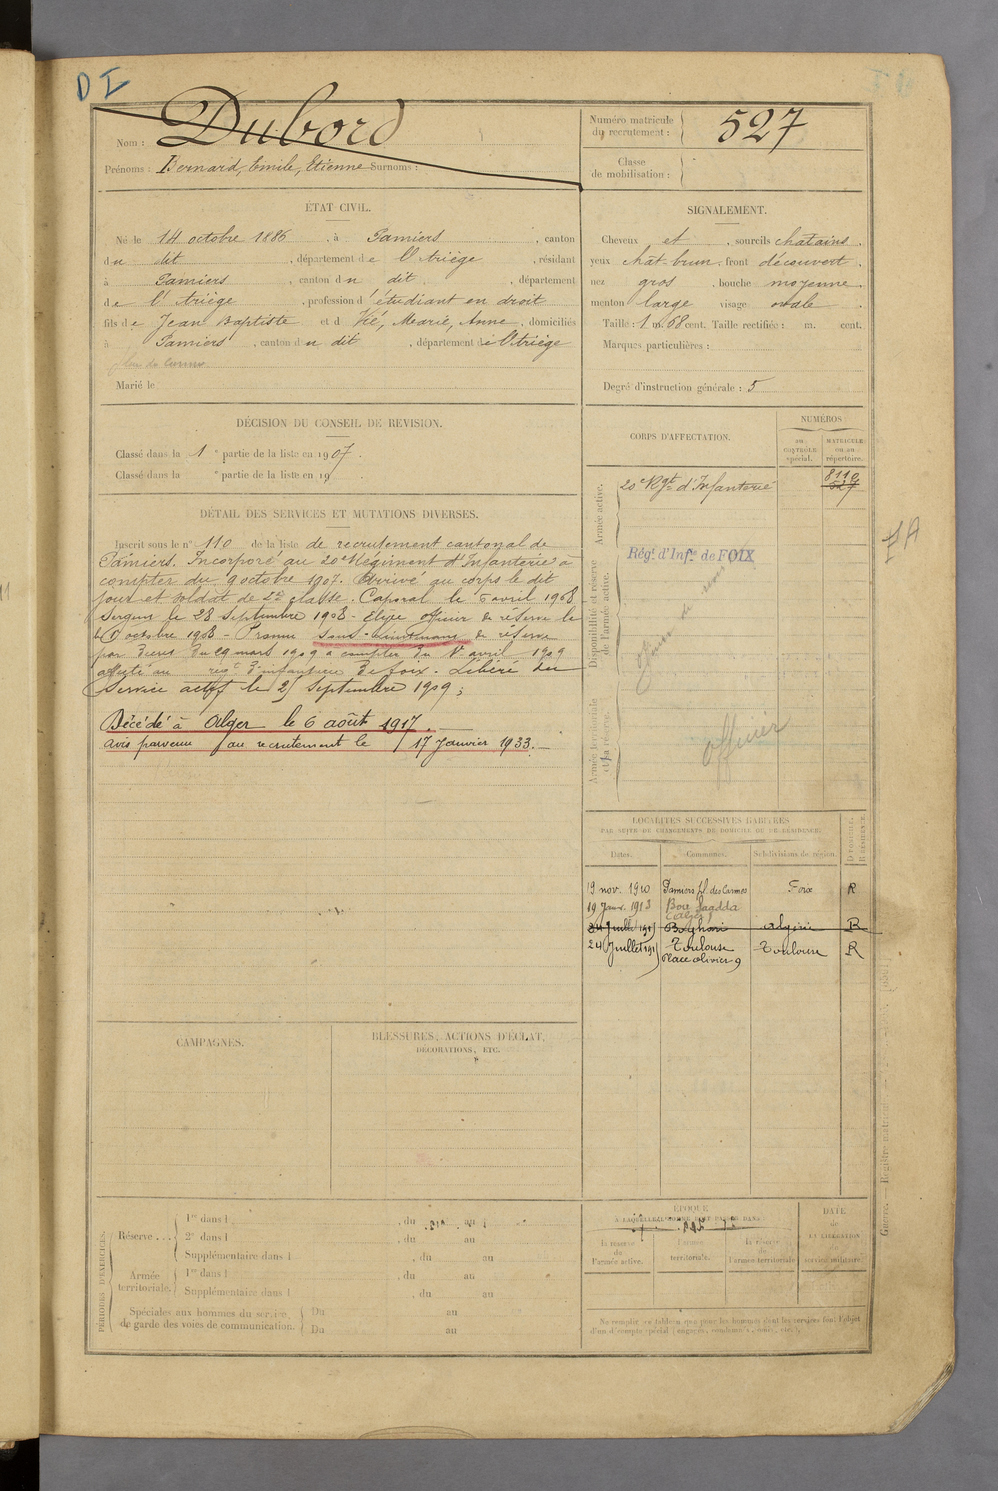 D I
Nom : Dubord
Prénoms : Bernard, Emile, Etienne Surnoms :
Numéro matricule
du recrutement : 527
Classe
de mobilisation :
ÉTAT CIVIL.
Né le 14 octobre 1886 , à Pamiers , canton
du dit , département de l'Ariège , résidant
à Pamiers , canton du dit , département
de l'Ariège , profession d'étudiant en droit
fils de Jean Baptiste et de Vié, Marie, Anne , domiciliés
à Pamiers , canton du dit , département de l'Ariège
Marié le
SIGNALEMENT.
Cheveux et , sourcils chatains .
yeux chat-brun , front découvert ,
nez gros , bouche moyenne .
menton large visage ovale .
Taille : 1 m. 68 cent. Taille rectifiée : m. cent.
Marques particulières :
Degré d'instruction générale : 5
DÉCISION DU CONSEIL DE REVISION.
Classé dans la 1e partie de la liste en 1907.
Classé dans la e partie de la liste en 19 .
DÉTAIL DES SERVICES ET MUTATIONS DIVERSES.
Inscrit sous le n° 110 de la liste de recrutement cantonal de
Pamiers. Incorporé au 20e Régiment d'Infanterie à
compter du 9 octobre 1907. Arrivé au corps le dit
jour et soldat de 2e classe. Caporal le 6 avril 1908
Sergent le 28 Septembre 1908 - Elève officier de réserve le
octobre 1908 - Promu sous-lieutenant de réserve
par décret du 29 mars 1909 à compter du 1er avril 1909
affecté au régt d'infanterie de Foix. Libéré du
Service actif le 25 Septembre 1909 ;
Décédé à Alger le 6 août 1917.
avis parvenu au recrutement le 17 Janvier 1933.
CORPS D'AFFECTATION.
NUMÉROS
au
CONTRÔLE
spécial.
MATRICULE
ou au
répertoire.
Armée active.
20e Régt d'Infanterie
8110
527
Disponibilité et réserve
de l'armée active.
Régt d'Infie de FOIX
officier de réserve
Armée territoriale
et sa réserve.
officier
LOCALITÉS SUCCESSIVES HABITÉES
PAR SUITE DE CHANGEMENTS DE DOMICILE OU DE RÉSIDENCE.
Dates.
Communes.
Subdivisions de région.
DOMICILE.
RÉSIDENCE.
19 nov. 1910 Pamiers pl. des Carmes Foix R
19 Janv. 1913
(Alger)
24 Juillet 191 Boghari Algérie R
24 Juillet 191 Toulouse Toulouse R
Place Olivier 9
CAMPAGNES.
BLESSURES, ACTIONS D'ÉCLAT,
DÉCORATIONS, ETC.
PÉRIODES D'EXERCICES.
Réserve...
1re dans l , du au
2e dans l , du au
Supplémentaire dans l , du au
Armée
territoriale.
1re dans l , du au
Supplémentaire dans l , du au
Spéciales aux hommes du service
de garde des voies de communication.
Du au
Du au
ÉPOQUE
À LAQUELLE L'HOMME DOIT PASSER DANS
la réserve
de
l'armée active.
l'armée
territoriale.
la réserve
de
l'armée territoriale
DATE
de
LA LIBÉRATION
du
service militaire.